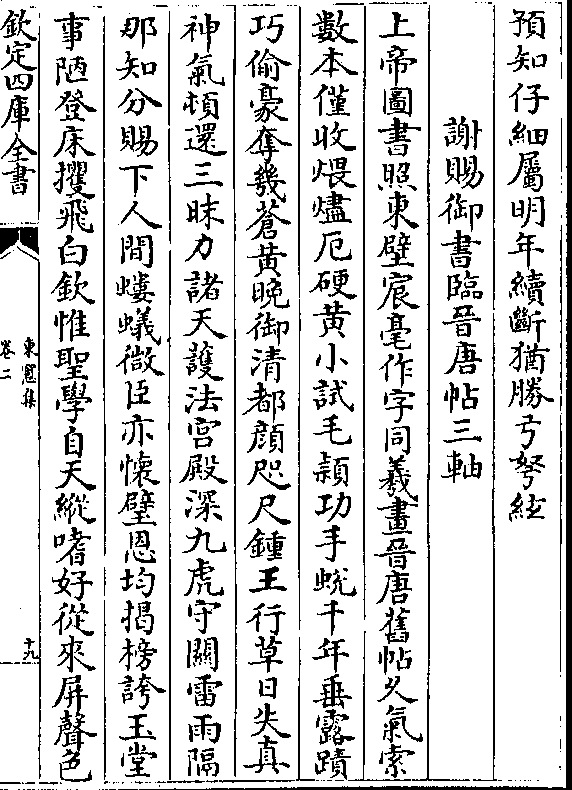 預知仔細屬明年續斷猶勝弓弩絃
謝賜御書臨晉唐帖三軸
上帝圖書照東壁宸毫作字同羲畫晉唐舊帖久氣索
數本僅收煨燼厄硬黃小試毛穎功手蛻千年垂露蹟
巧偷豪奪幾蒼黃晚御清都顏咫尺鍾王行草日失真
神氣頓還三昧力諸天護法宮殿深九虎守關雷雨隔
那知分賜下人間螻蟻微臣亦懷璧恩均揭榜誇玉堂
事陋登床攫飛白欽惟聖學自天縱嗜好從來屏聲色
欽定四庫全書
東窻集
卷二
十九